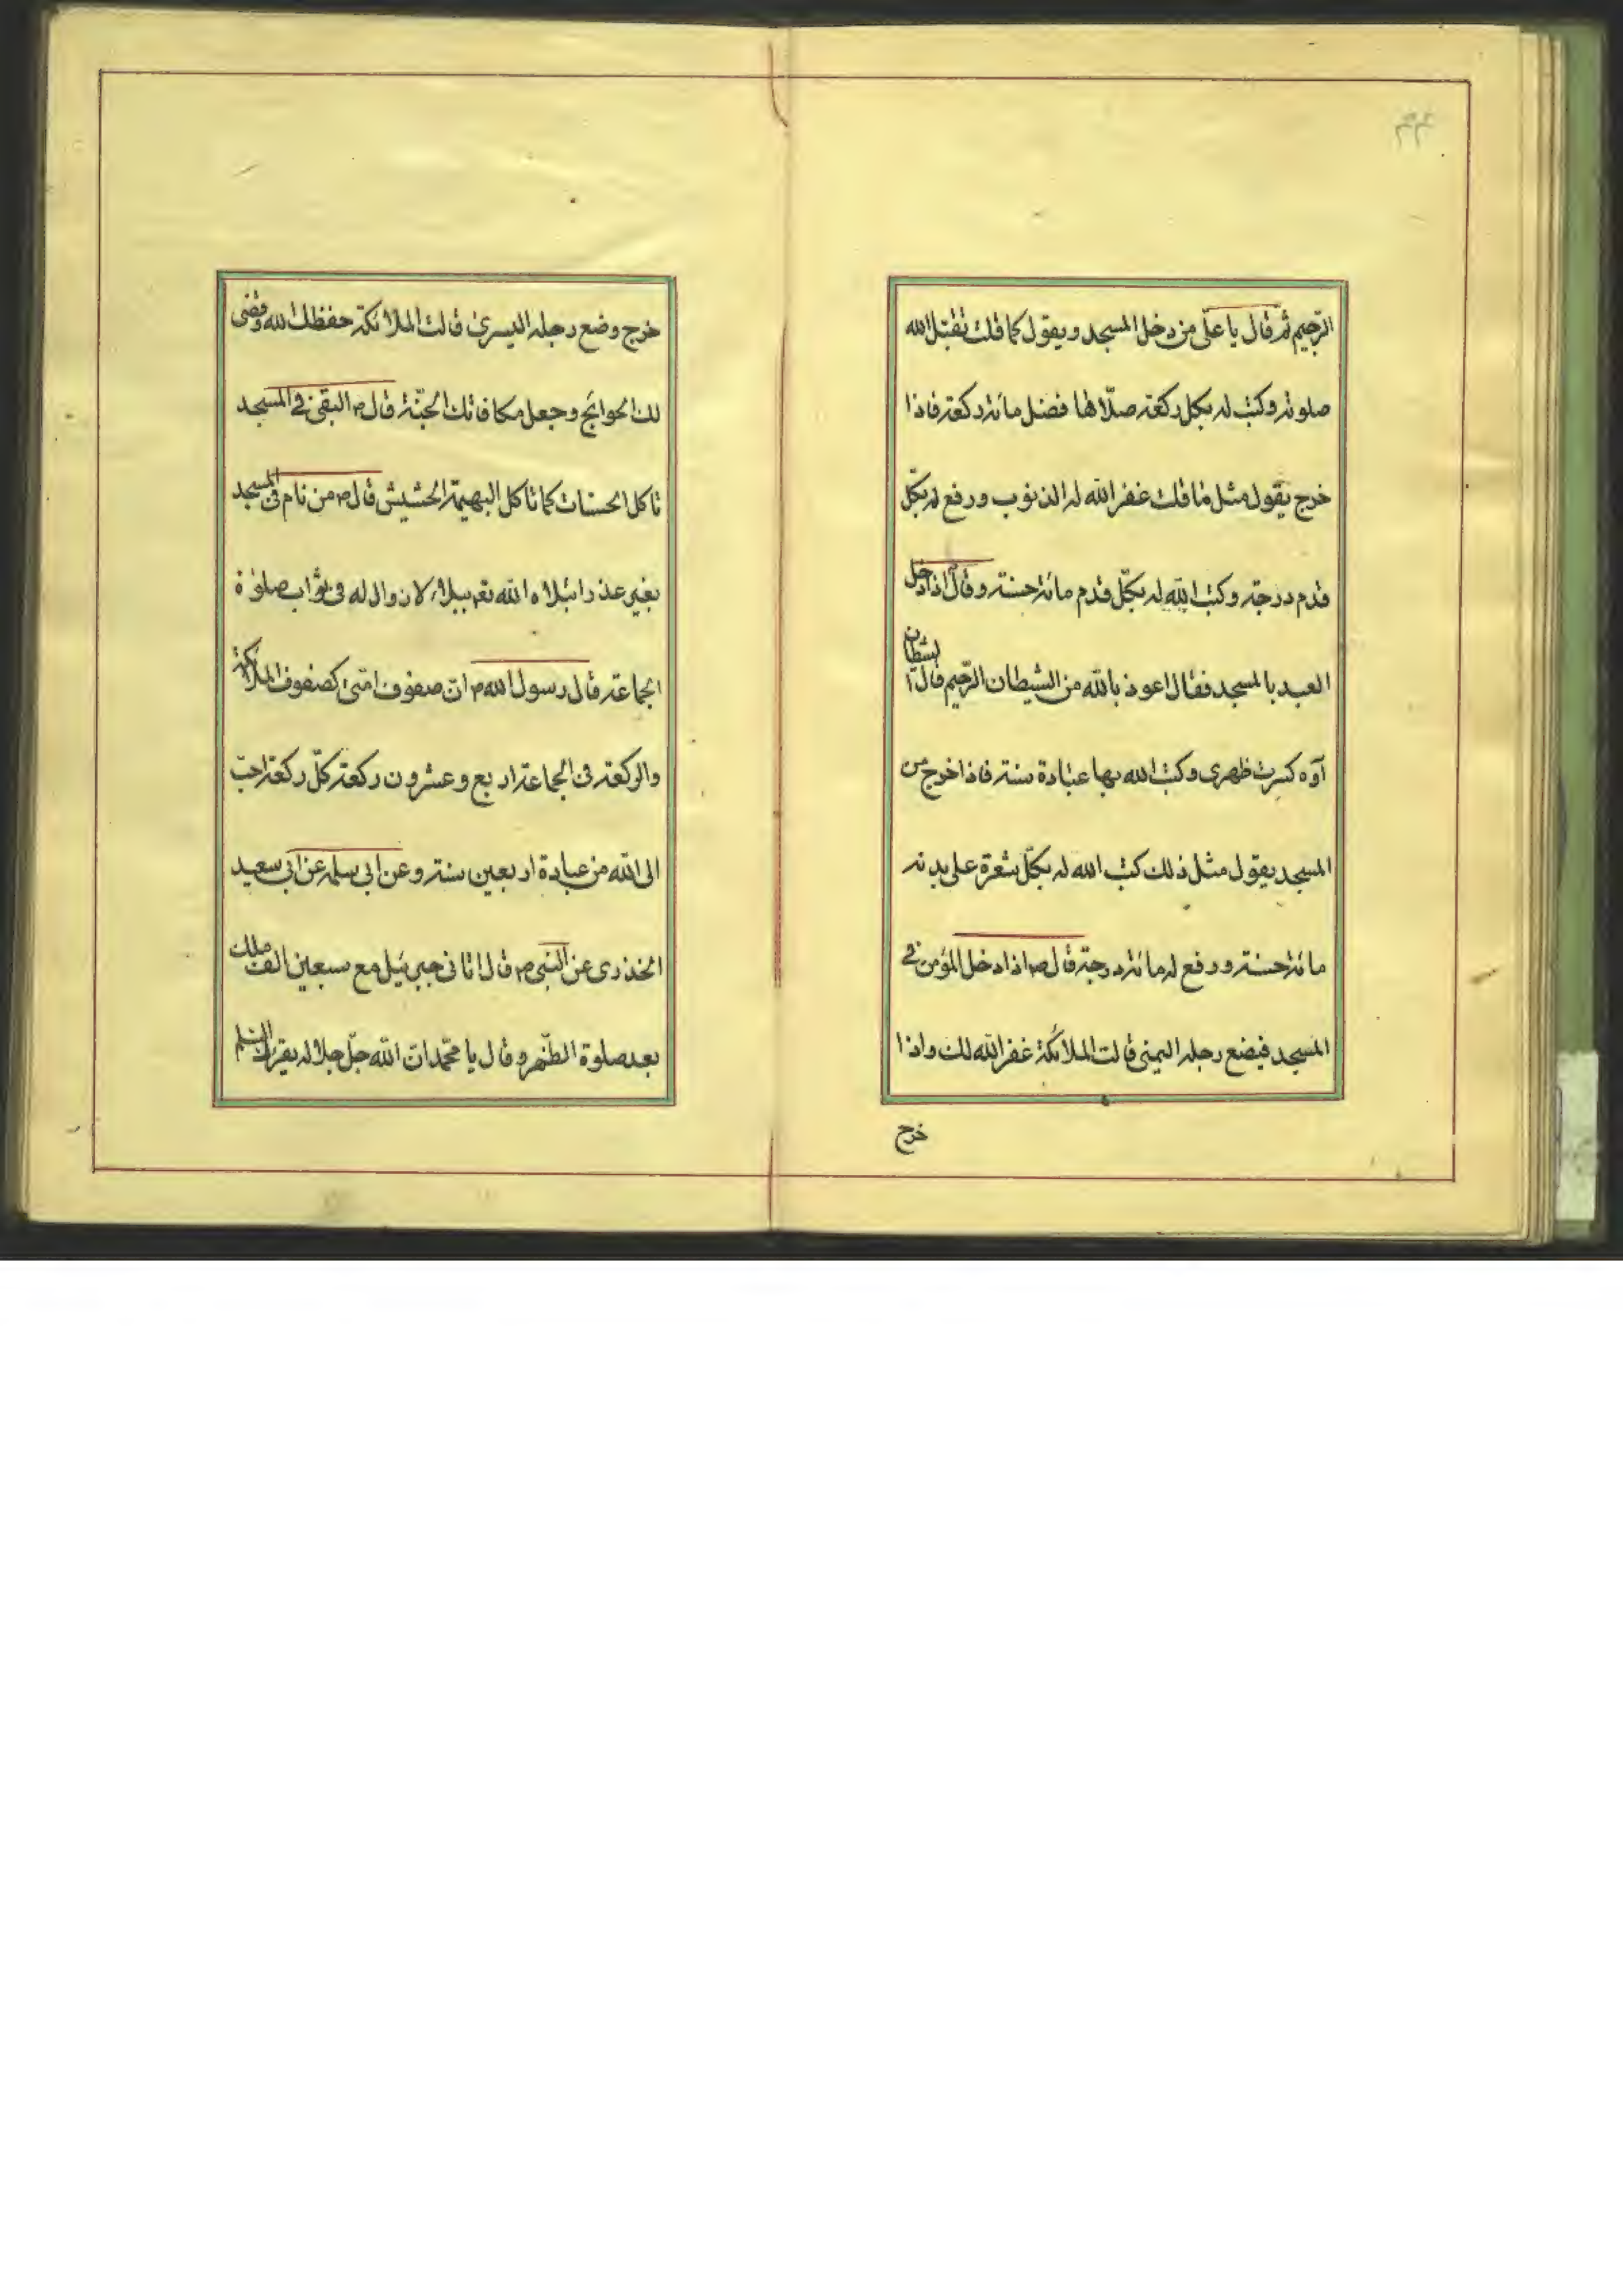 ٤٣
الرّجيم ثم قال يا علّى من دخل المسجد و يقول كما قلت تقبّل الله
صلوته وكتب له بكل ركعة صلّاها فضل مائة ركعة فاذا
خرج يقول مثل ما قلت غفر الله له الذنوب ورفع له بكلّ
قدم درجة وكتب الله له بكلّ قدم مائة حسنة وقال اذا دخل
العبد بالمسجد فقال اعوذ بالله من الشيطان الرّجيم قال الشيطان
آوه كسرت ظهرى وكتب الله بها عبادة سنة فاذا خرج من
المسجد يقول مثل ذلك كتب الله له بكلّ شعرة على بدنه
مائة حسنة ورفع له مائة درجة قال ص اذا دخل المؤمن فى
المسجد فيضع رجله اليمنى قالت الملائكة غفر الله لك واذا
خرج
خرج وضع رجله اليسرى قالت الملائكة حفظك الله وقضى
لك الحوائج وجعل مكافاتك الجنّة قال ص البقى فى المسجد
تاكل الحسنات كما تاكل البهيمة الحشيش قال ص من نام فى المسجد
بغير عذر ابتلاه الله تعم ببلاء لا زوال له فى ثواب صلوة
الجماعة قال رسول الله ص انّ صفوف امتى كصفوف الملائكة
والركعة فى الجماعة اربع وعشرون ركعة كلّ ركعة احبّ
الى الله من عبادة اربعين سنة وعن ابى سلمه عن ابى سعيد
الخذرى عن النبى ص قال اتانى جبرئيل مع سبعين الف ملك
بعد صلوة الظهر وقال يا محمّد انّ الله جلّ جلاله يقرئك السّلم